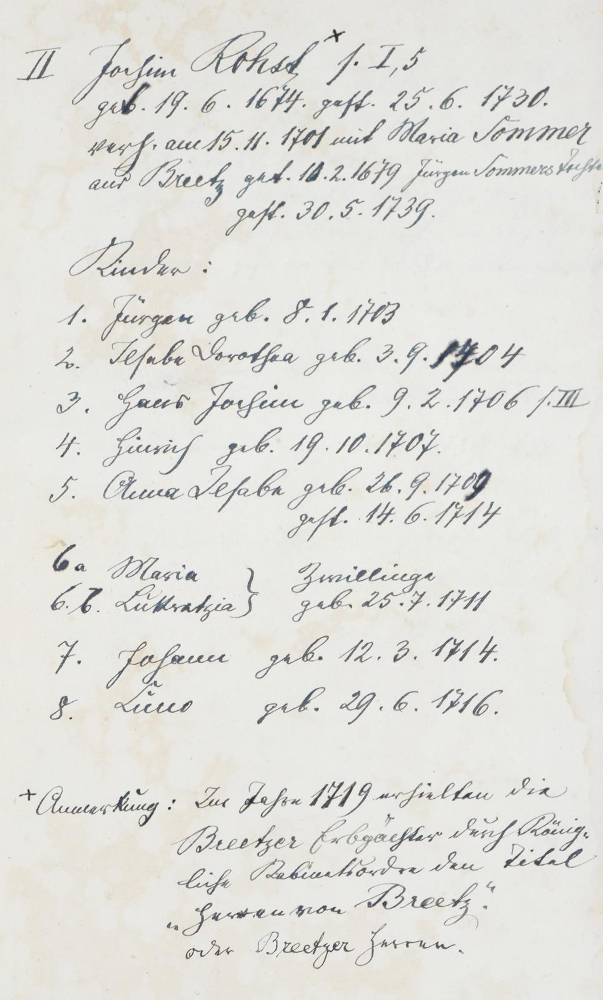 II Jochim Rohst × s. I,5
geb. 19. 6. 1674. gest. 25. 6. 1730.
verh. am 15. 11. 1701 mit Maria Sommer
aus Breetz get. 11.2.1679 Jürgen Sommers Tochter
gest. 30. 5. 1739.
Kinder:
1. Jürgen geb. 8. 1. 1703
2. Ilsabe Dorothea geb. 3. 9. 1704
3. Hans Jochim geb. 9. 2. 1706 s. III
4. Hinrich geb. 19. 10. 1707.
5. Anna Ilsabe geb. 26. 9. 1709
gest. 14. 6. 1714
6a Maria } Zwillinge
6. b. Lukretzia } geb. 25. 7. 1711
7. Johann geb. 12. 3. 1714.
8. Lüno geb. 29. 6. 1716.
× Anmerkung: Im Jahre 1719 erhielten die
Breetzer Erbpächter durch König-
liche Kabinetsordre den Titel
„Herren von Breetz"
oder Breetzer Herren.